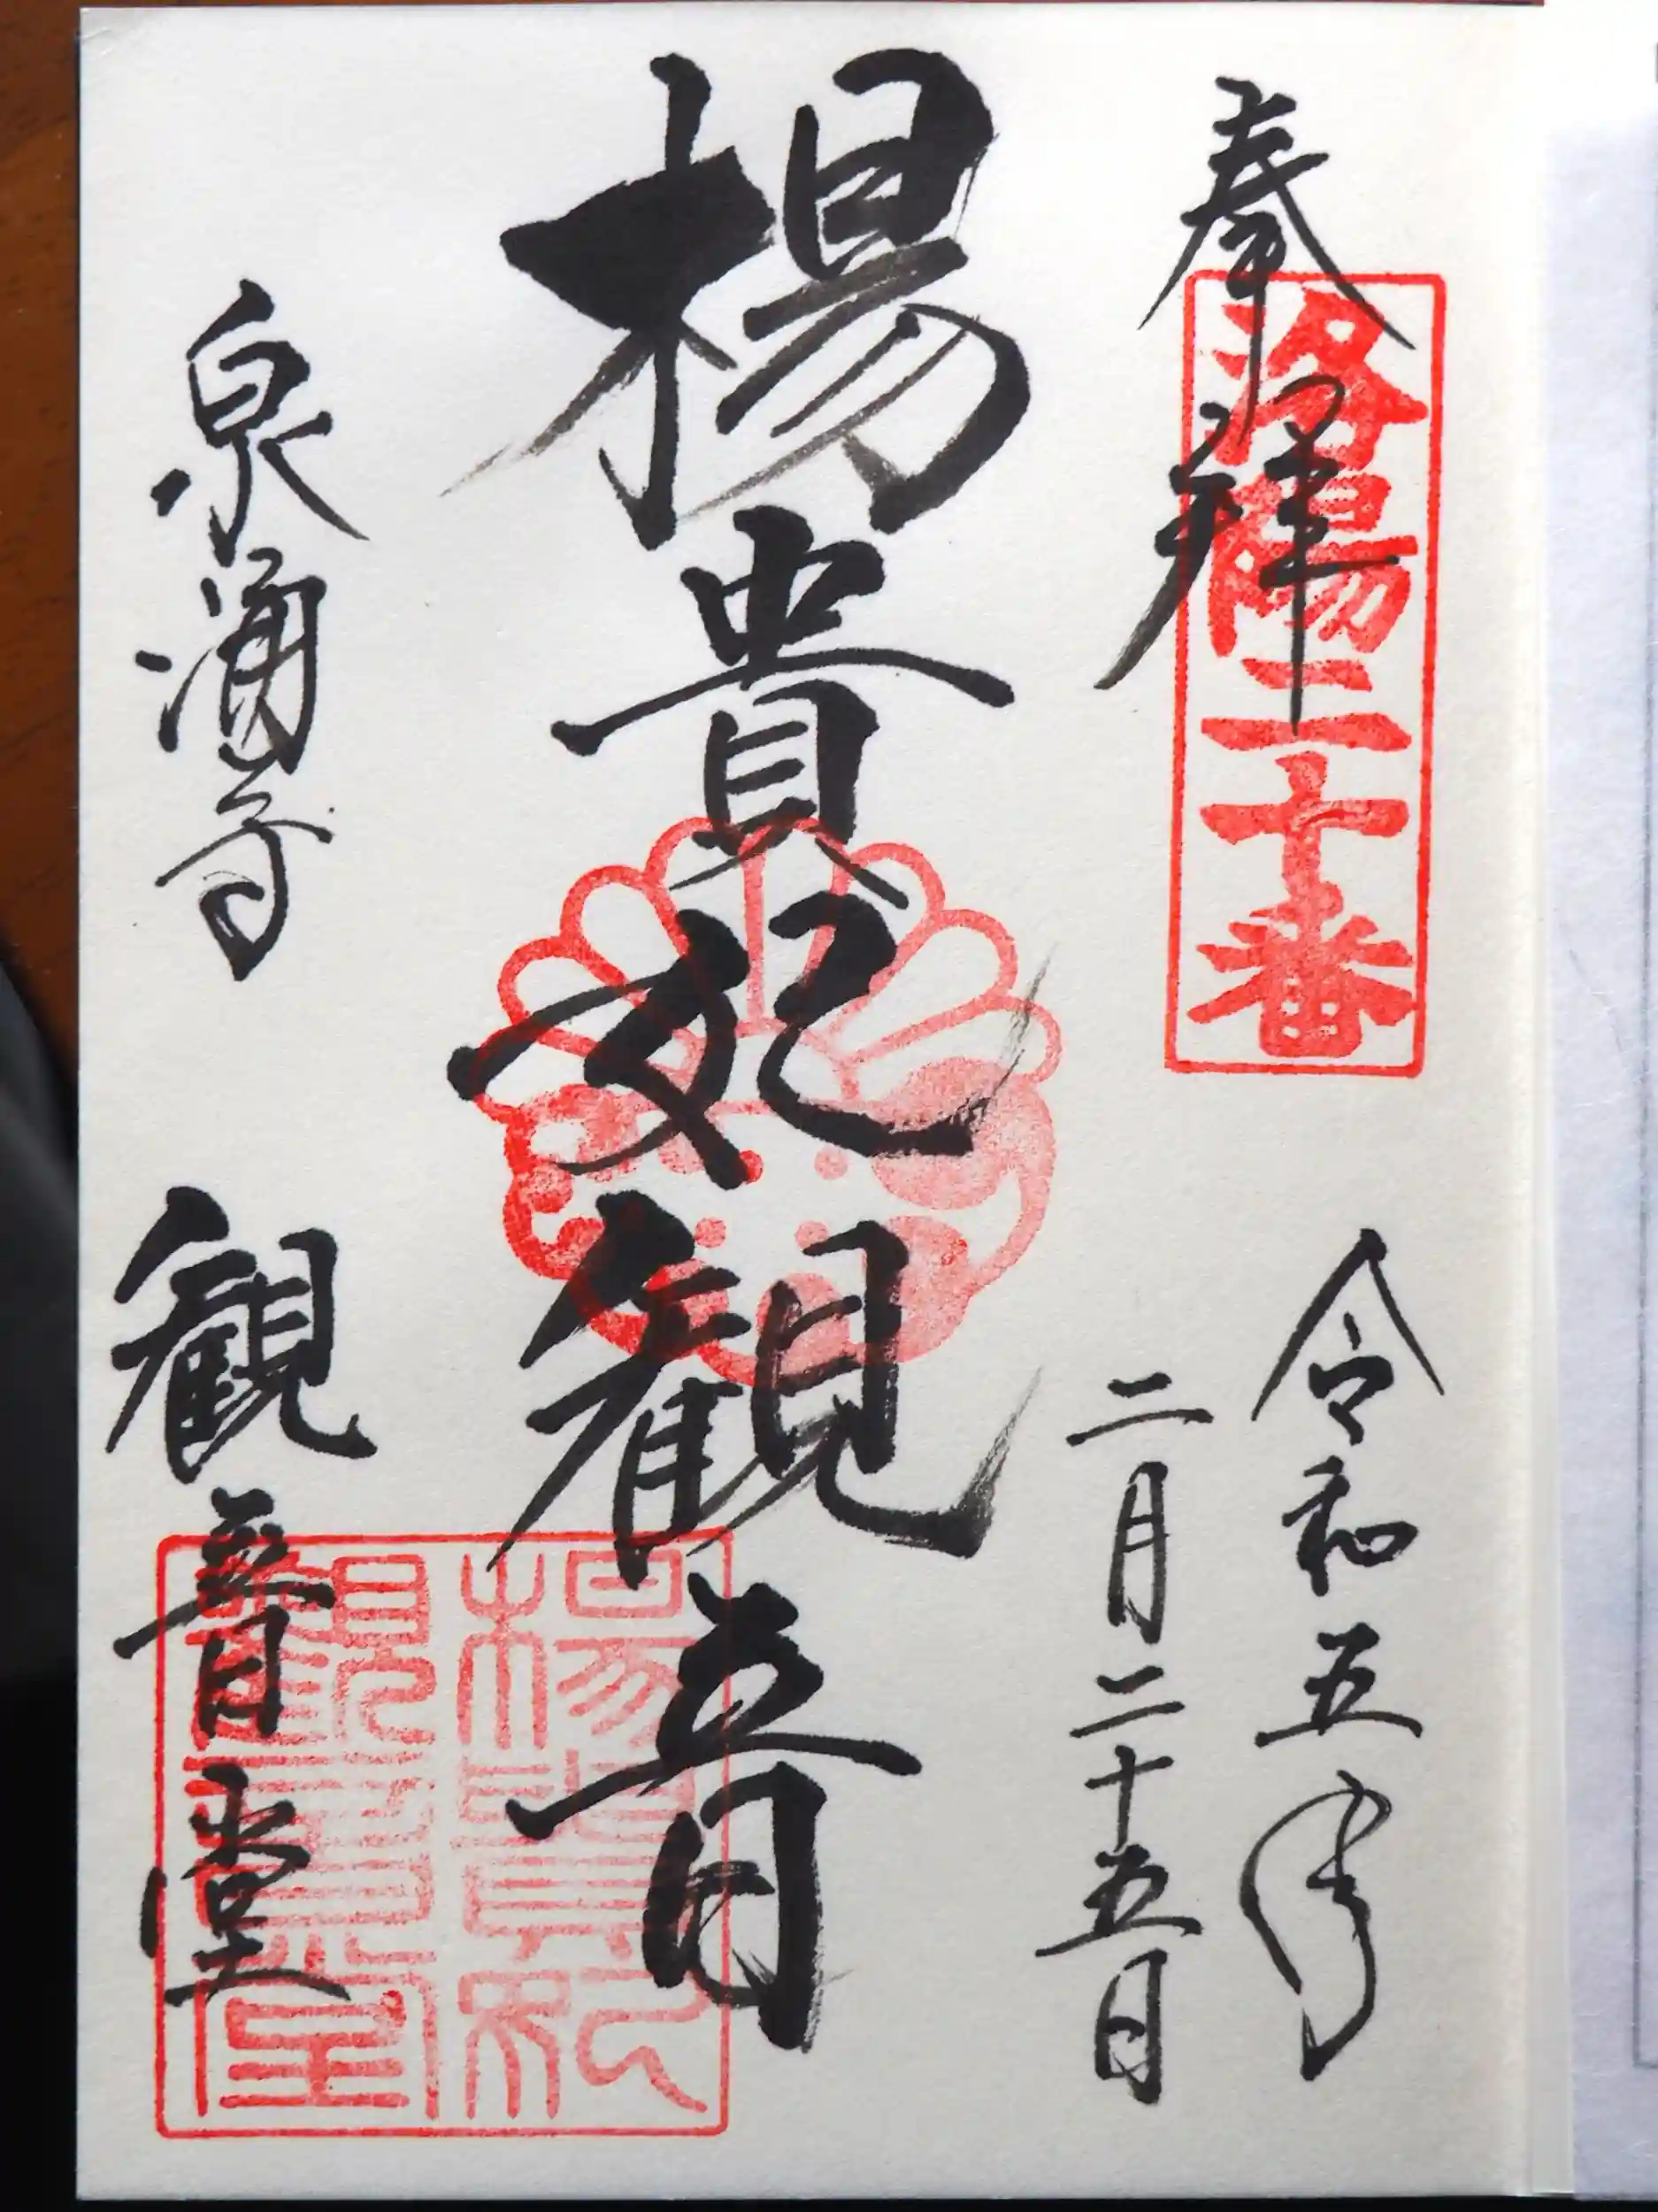 奉拝
洛陽二十番
令和五年
二月二十五日
楊貴妃観音
泉涌寺
観音堂
楊貴妃
観音堂